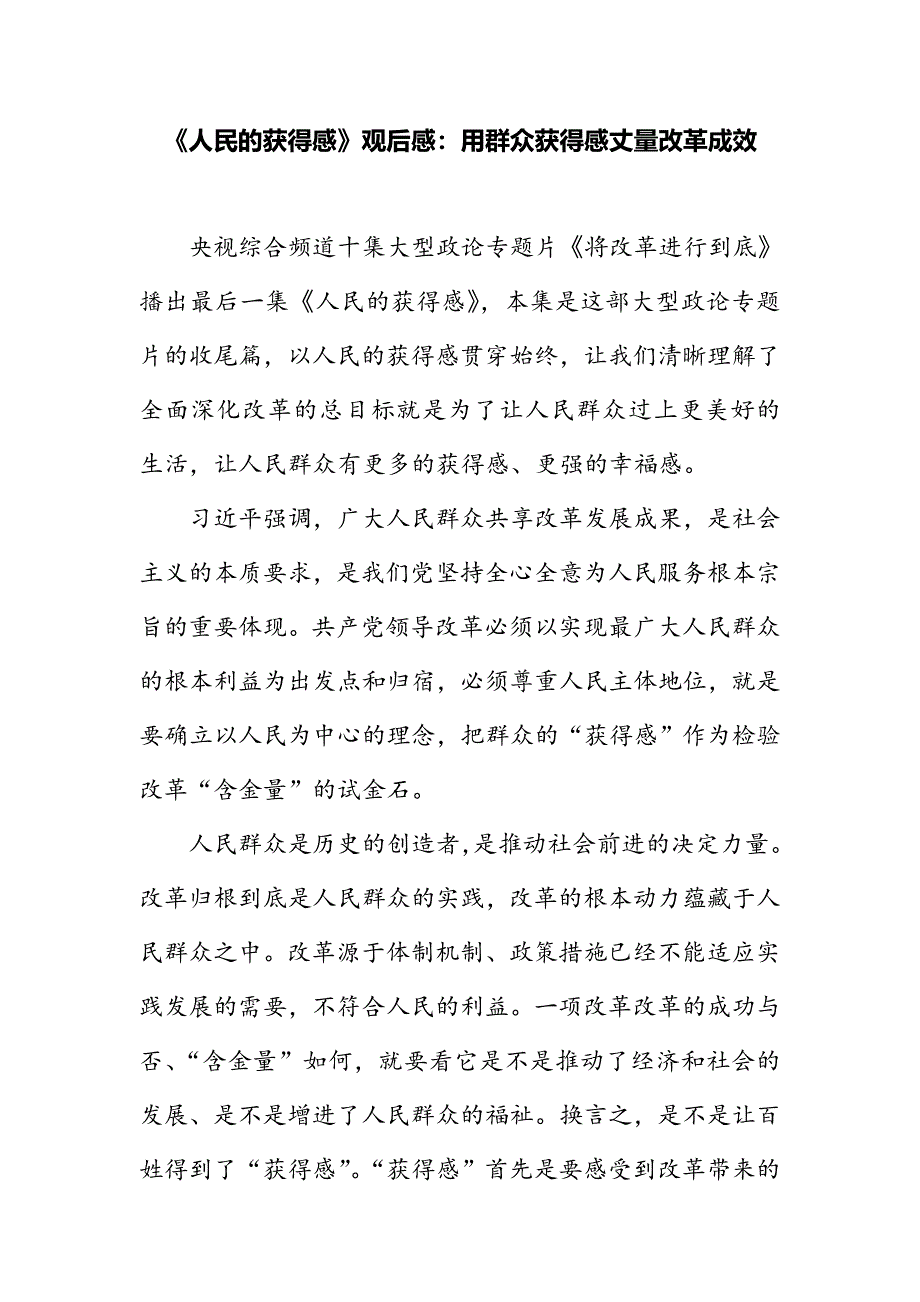 《人民的获得感》观后感：用群众获得感丈量改革成效
央视综合频道十集大型政论专题片《将改革进行到底》
播出最后一集《人民的获得感》，本集是这部大型政论专题
片的收尾篇，以人民的获得感贯穿始终，让我们清晰理解了
全面深化改革的总目标就是为了让人民群众过上更美好的
生活，让人民群众有更多的获得感、更强的幸福感。
习近平强调，广大人民群众共享改革发展成果，是社会
主义的本质要求，是我们党坚持全心全意为人民服务根本宗
旨的重要体现。共产党领导改革必须以实现最广大人民群众
的根本利益为出发点和归宿，必须尊重人民主体地位，就是
要确立以人民为中心的理念，把群众的“获得感”作为检验
改革“含金量”的试金石。
人民群众是历史的创造者,是推动社会前进的决定力量。
改革归根到底是人民群众的实践，改革的根本动力蕴藏于人
民群众之中。改革源于体制机制、政策措施已经不能适应实
践发展的需要，不符合人民的利益。一项改革改革的成功与
否、“含金量”如何，就要看它是不是推动了经济和社会的
发展、是不是增进了人民群众的福祉。换言之，是不是让百
姓得到了“获得感”。“获得感”首先是要感受到改革带来的